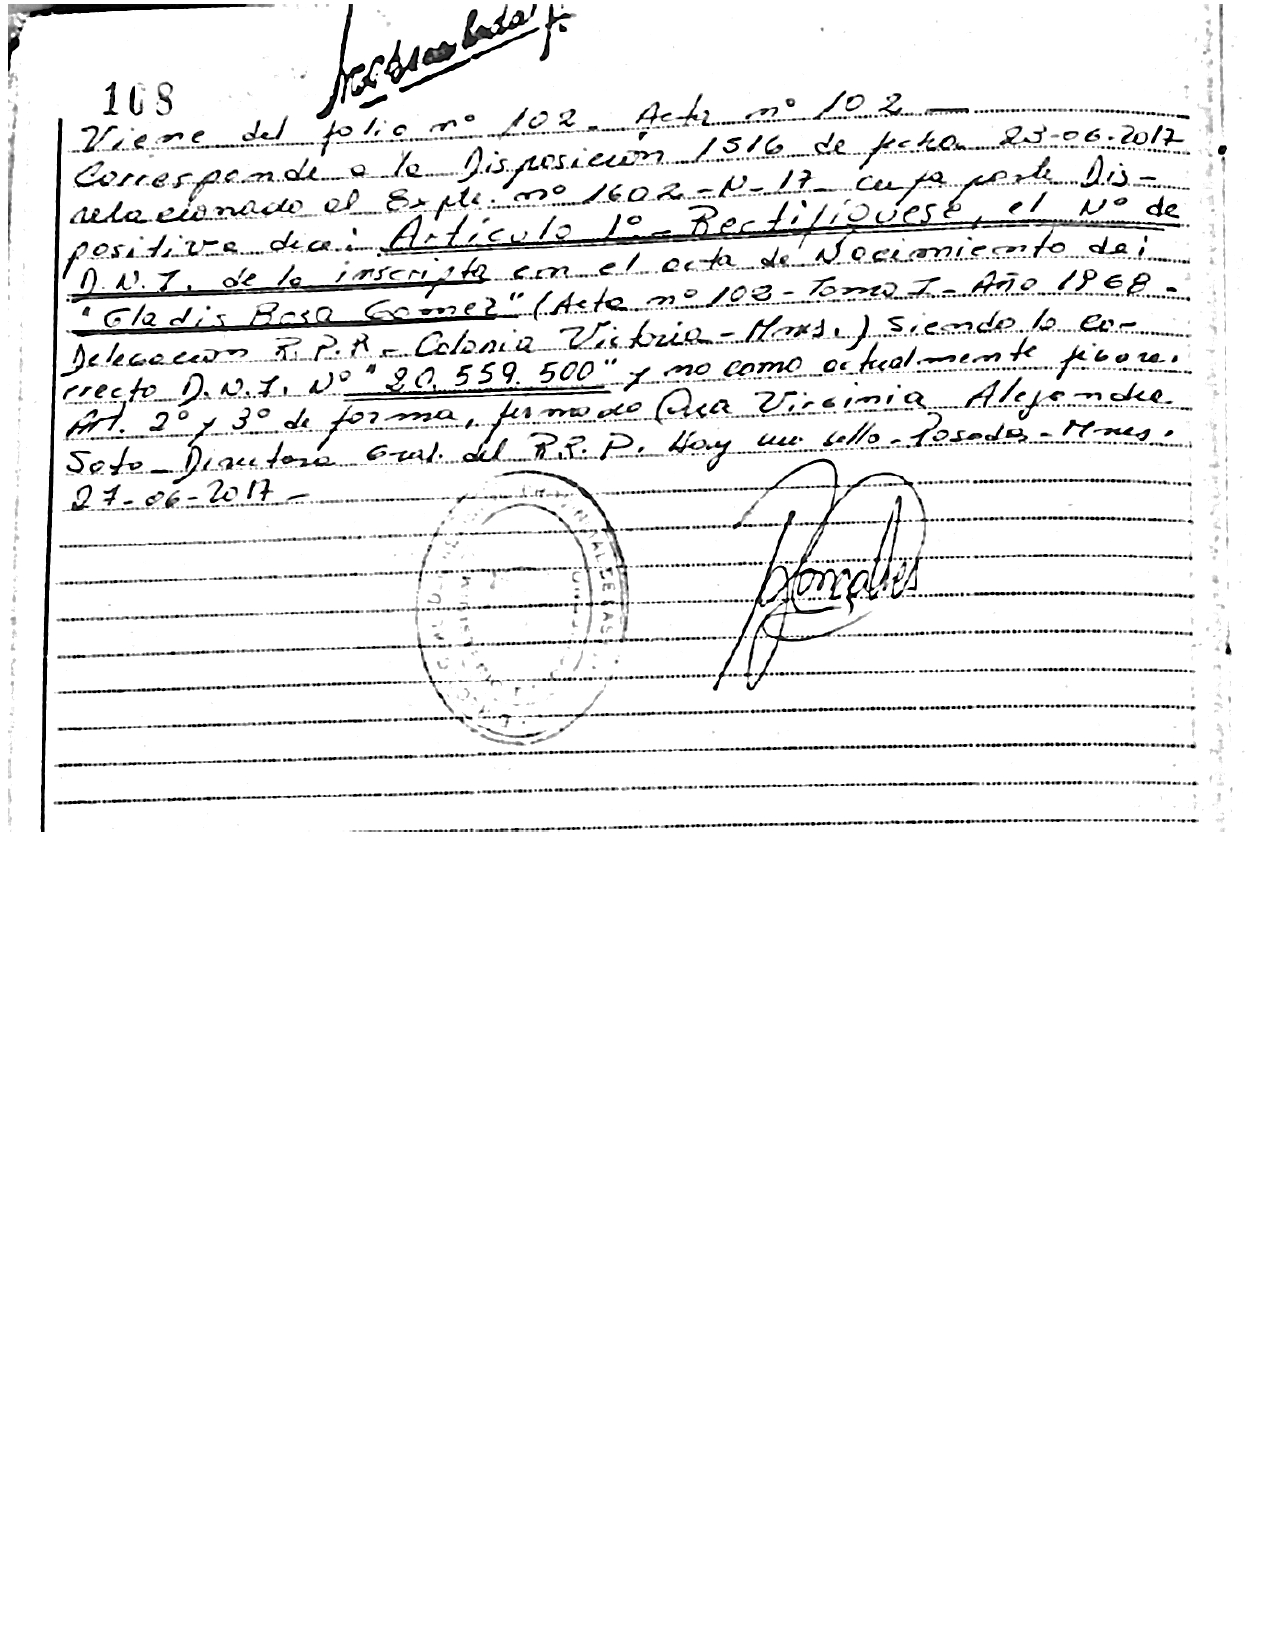 108
Viene del folio nº 102. Acta nº 102 —
Corresponde a la Disposición 1516 de fecha 23-06-2017
relacionado al Expte. nº 1602-N-17 cuya parte Dis-
positiva dice: Artículo 1º- Rectifíquese, el Nº de
D.N.I. de la inscripta en el acta de Nacimiento de:
"Gladis Rosa Gomez" (Acta nº 102 - Tomo I - Año 1968 -
Delegación R.P.R - Colonia Victoria - Mnes.) siendo lo co-
rrecto D.N.I. Nº "20.559.500" y no como actualmente figura.
Art. 2º y 3º de forma, firmado Dra Virginia Alejandra
Soto - Directora Gral. del R.R.P. Hay un sello - Posadas - Mnes.
27-06-2017 -
Gonçalves